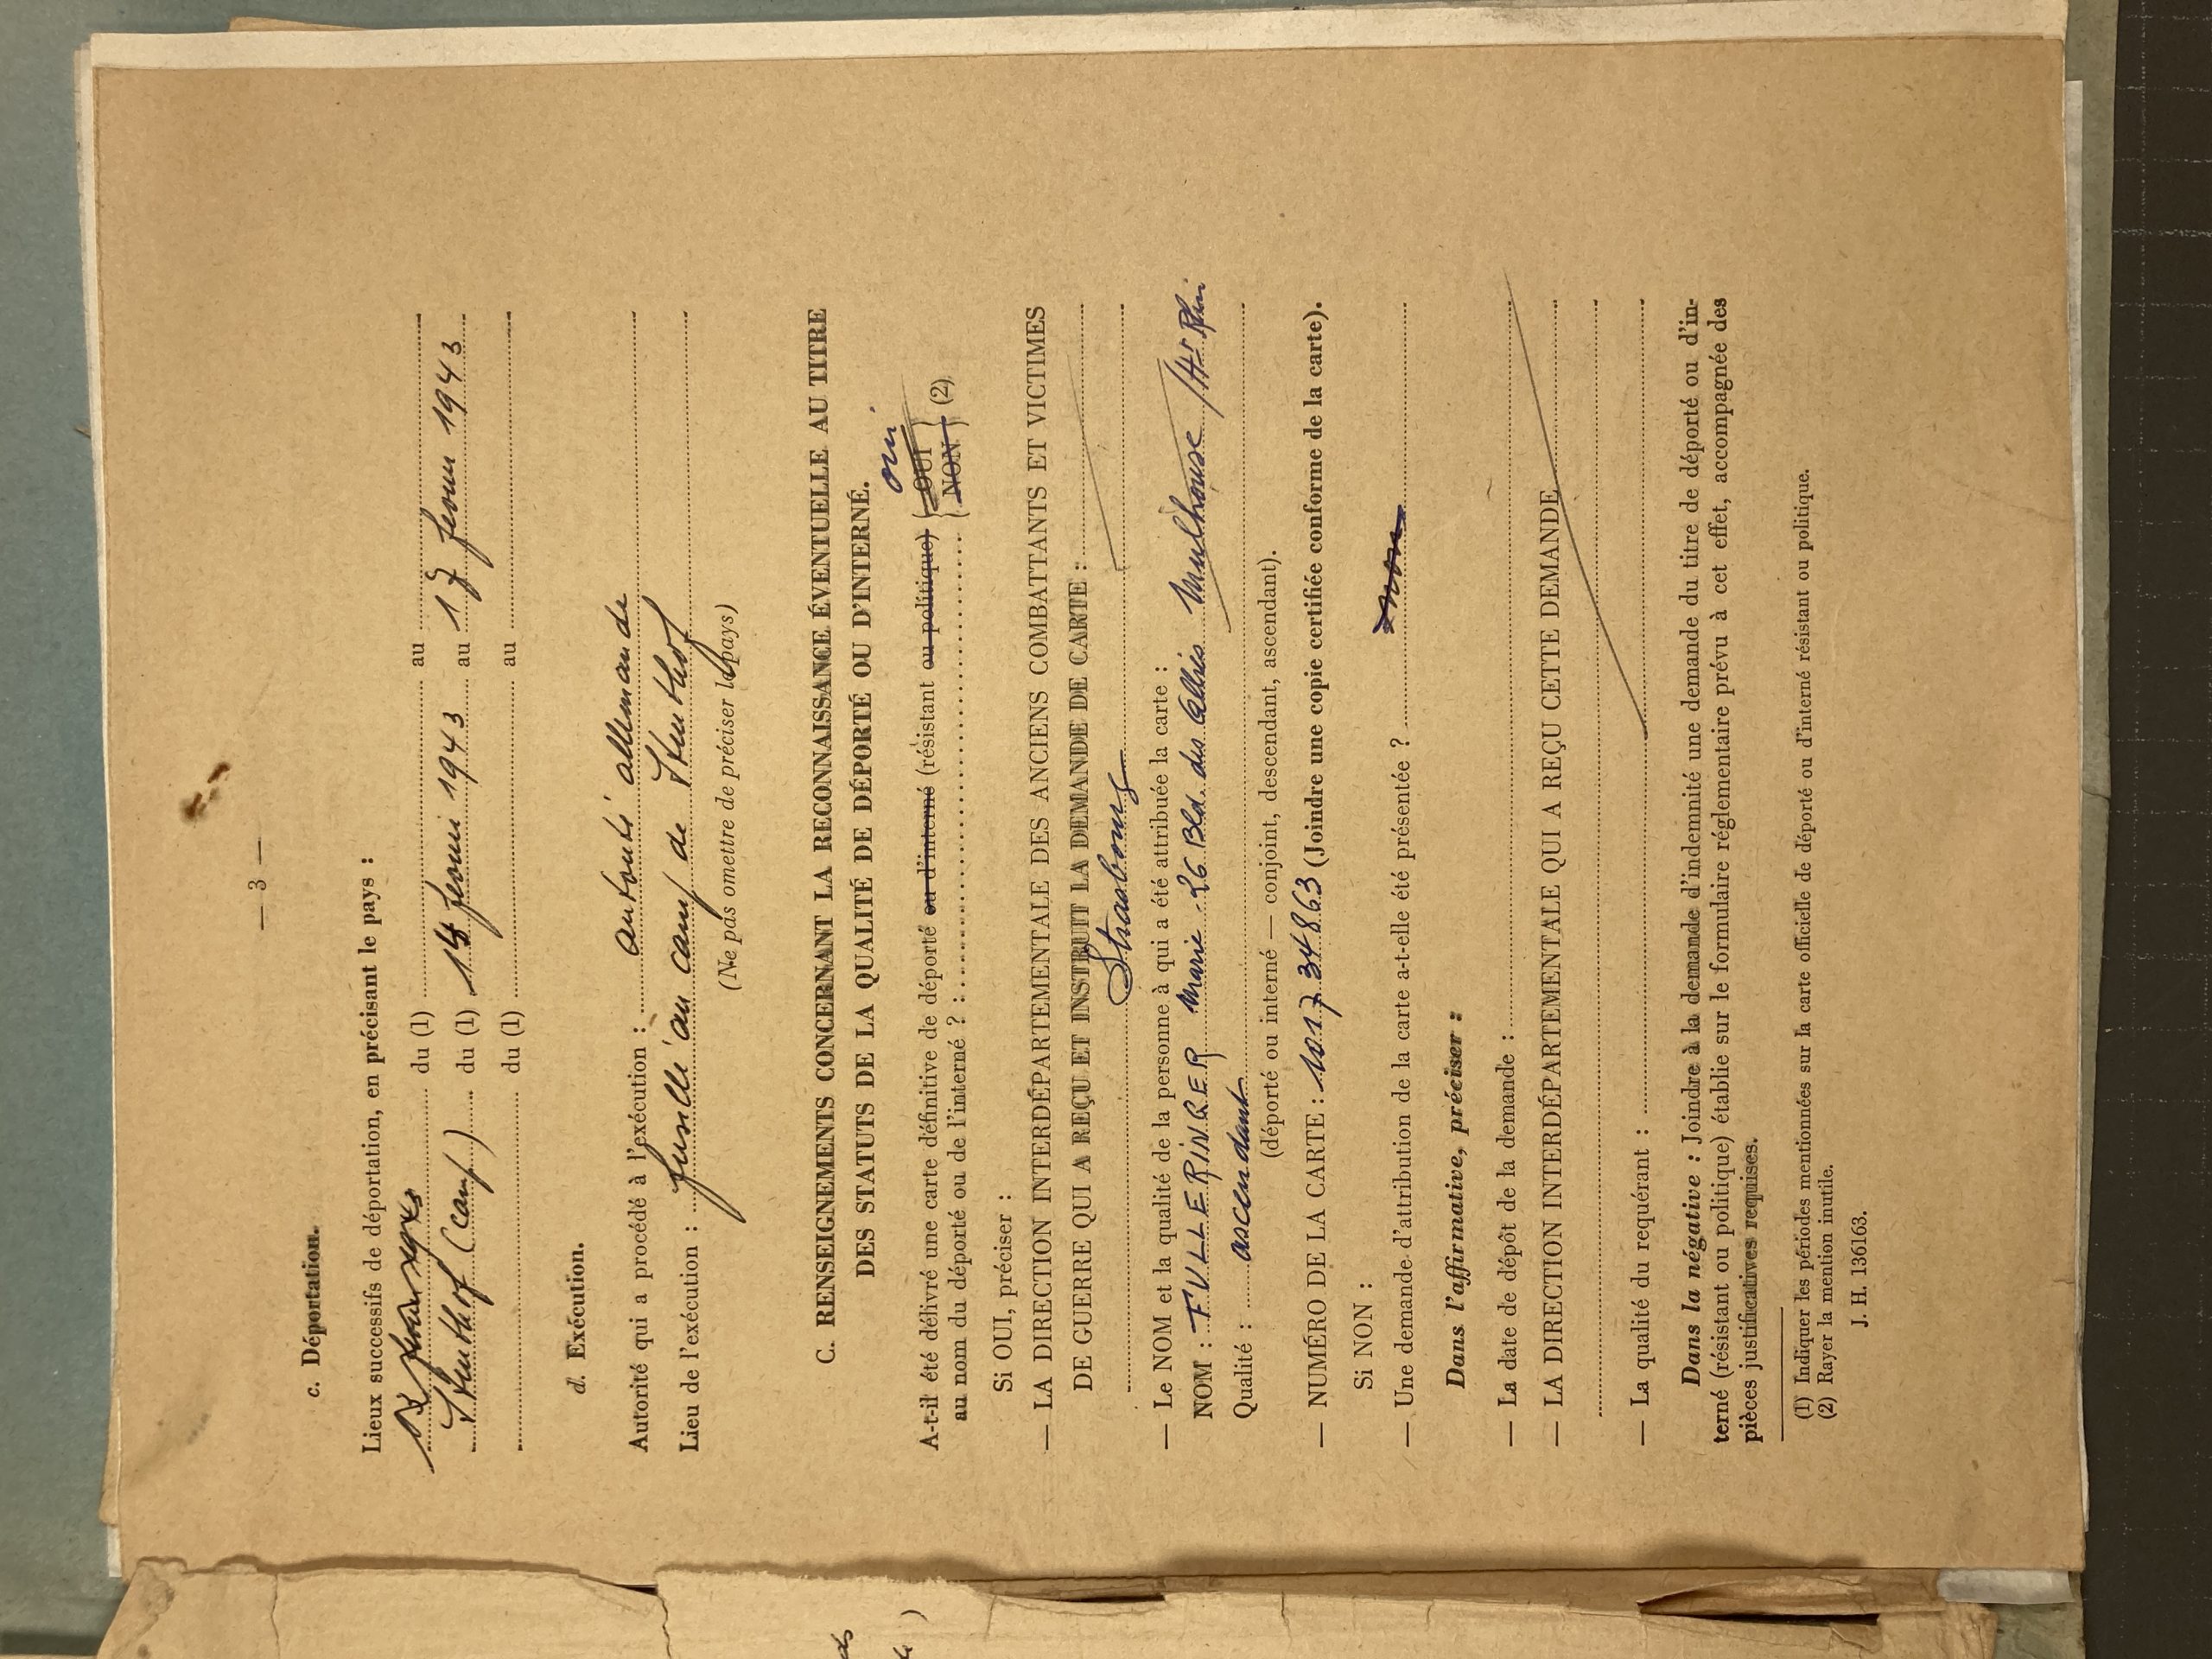 — 3 —
c. Déportation.
Lieux successifs de déportation, en précisant le pays :
du (1) au
Struthof (camp) du (1) 14 février 1943 au 17 février 1943
du (1) au
d. Exécution.
Autorité qui a procédé à l'exécution : autorité allemande
Lieu de l'exécution : fusillé au camp de Struthof
(Ne pas omettre de préciser le pays)
C. RENSEIGNEMENTS CONCERNANT LA RECONNAISSANCE ÉVENTUELLE AU TITRE
DES STATUTS DE LA QUALITÉ DE DÉPORTÉ OU D'INTERNÉ.
oui
A-t-il été délivré une carte définitive de déporté ou d'interné (résistant ou politique) { OUI }
au nom du déporté ou de l'interné ? : { NON } (2)
Si OUI, préciser :
— LA DIRECTION INTERDÉPARTEMENTALE DES ANCIENS COMBATTANTS ET VICTIMES
DE GUERRE QUI A REÇU ET INSTRUIT LA DEMANDE DE CARTE :
Strasbourg
— Le NOM et la qualité de la personne à qui a été attribuée la carte :
NOM : FULLERINGER Marie 26 Bld. des Alliés Mulhouse /Ht Rhin
Qualité : ascendant
(déporté ou interné — conjoint, descendant, ascendant).
— NUMÉRO DE LA CARTE : 1017 34863 (Joindre une copie certifiée conforme de la carte).
Si NON :
— Une demande d'attribution de la carte a-t-elle été présentée ? non
Dans l'affirmative, préciser :
— La date de dépôt de la demande :
— LA DIRECTION INTERDÉPARTEMENTALE QUI A REÇU CETTE DEMANDE
— La qualité du requérant :
Dans la négative : Joindre à la demande d'indemnité une demande du titre de déporté ou d'in-
terné (résistant ou politique) établie sur le formulaire réglementaire prévu à cet effet, accompagnée des
pièces justificatives requises.
(1) Indiquer les périodes mentionnées sur la carte officielle de déporté ou d'interné résistant ou politique.
(2) Rayer la mention inutile.
J. H. 136163.